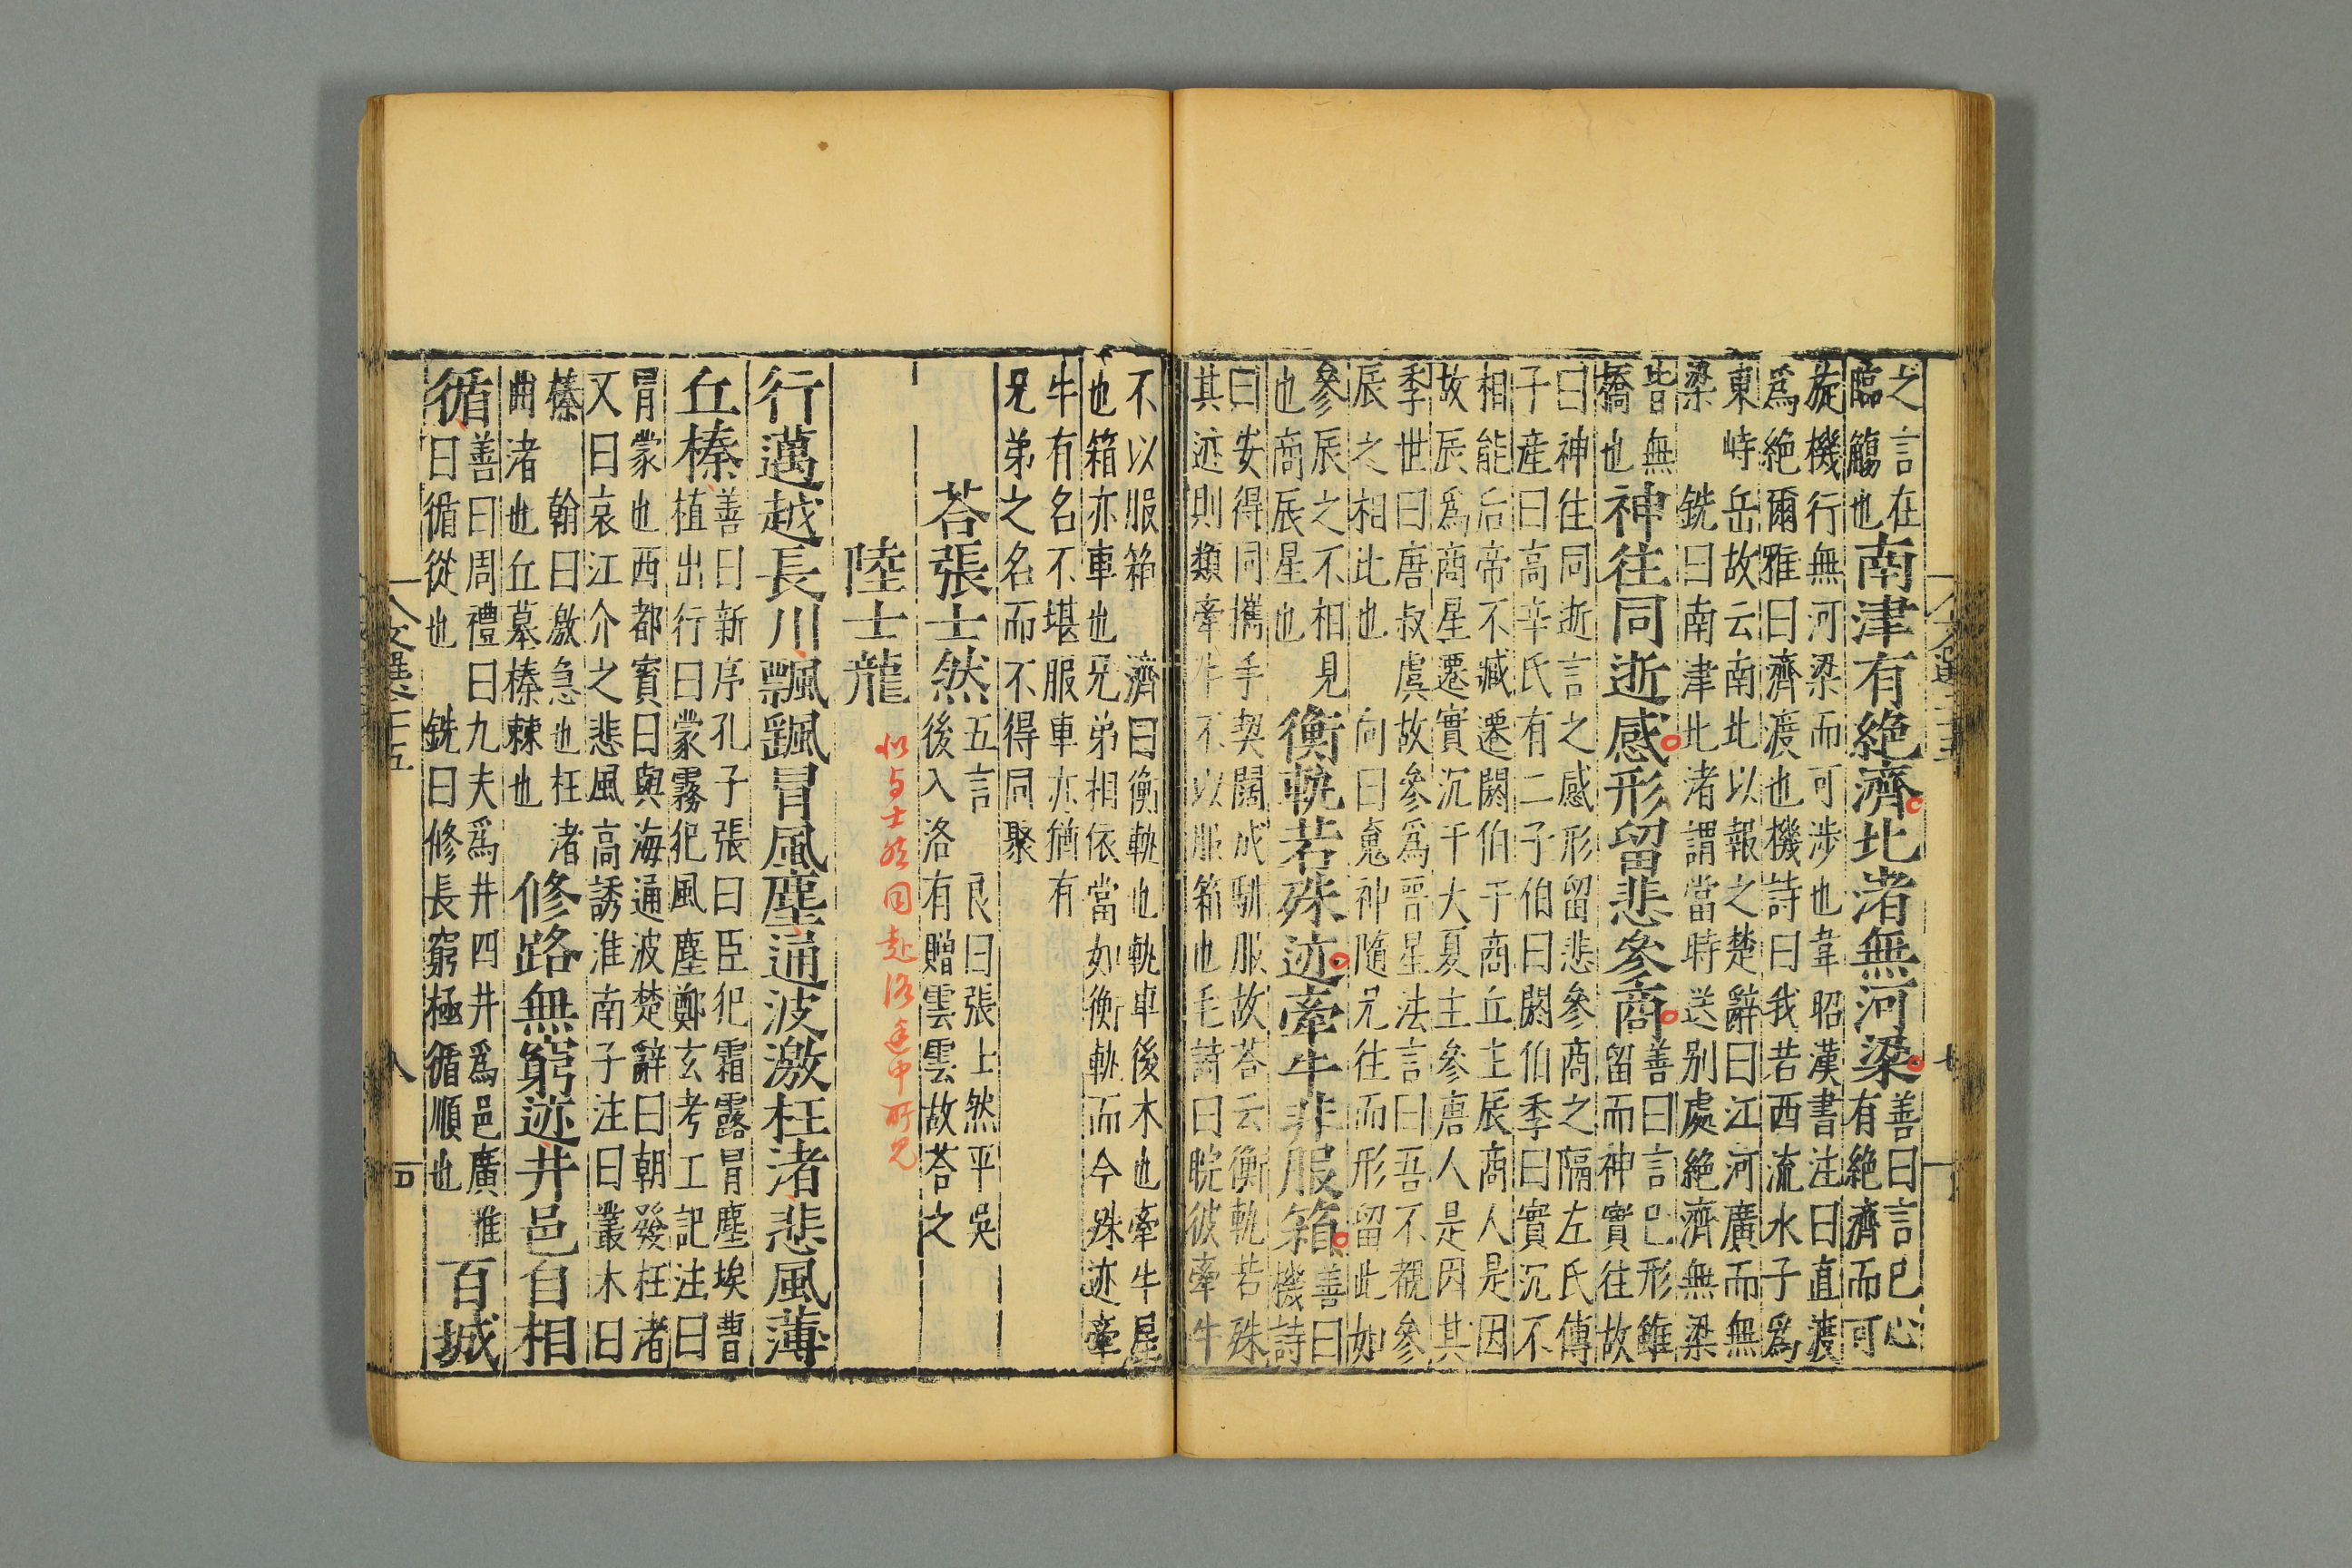 之言在
臨觴也
南津有絶濟北渚無河梁
善曰言巳心
有絶濟而可
旋機行無河梁而可涉也韋昭漢書注曰直渡
爲絶爾雅曰濟渡也機詩曰我若西流水子爲
東峙岳故云南北以報之楚辭曰江河廣而無
梁 銑曰南津北渚謂當時送别處絶濟無梁
皆無
橋也
神往同逝感形留悲參商
善曰言巳形雖
留而神實往故
曰神往同逝言之感形留悲參商之隔左氏傳
子産曰高辛氏有二子伯曰閼伯季曰實沉不
相能后帝不臧遷閼伯于商丘主辰商人是因
故辰爲商星遷實沉于大夏主參唐人是因其
季世曰唐叔虞故參爲晉星法言曰吾不覩參
辰之相比也 向曰䰟神隨兄往而形留此如
參辰之不相見
也商辰星也
衡軌若殊迹牽牛非服箱
善曰
機詩
曰安得同攜手契闊成騑服故荅云衡軌若殊
其迹則類牽牛不以服箱也毛詩曰睆彼牽牛
不以服箱 濟曰衡軌也軌車後木也牽牛星
也箱亦車也兄弟相依當如衡軌而今殊迹牽
牛有名不堪服車亦猶有
兄弟之名而不得同聚
荅張士然
五言 良曰張士然平吳
後入洛有贈雲雲故荅之
陸士龍
似与士然同赴洛途中所見
行邁越長川飄颻冒風塵通波激枉渚悲風薄
丘榛
善曰新序孔子張曰臣犯霜露冒塵埃曹
植出行曰蒙霧犯風塵鄭玄考工記注曰
冒蒙也西都賓曰與海通波楚辭曰朝發枉渚
又曰哀江介之悲風高誘淮南子注曰叢木曰
榛 翰曰激急也枉渚
曲渚也丘墓榛棘也
修路無窮迹井邑自相
循
善曰周禮曰九夫爲井四井爲邑廣雅
曰循從也 銑曰修長窮極循順也
百城
文選卷二十五
八